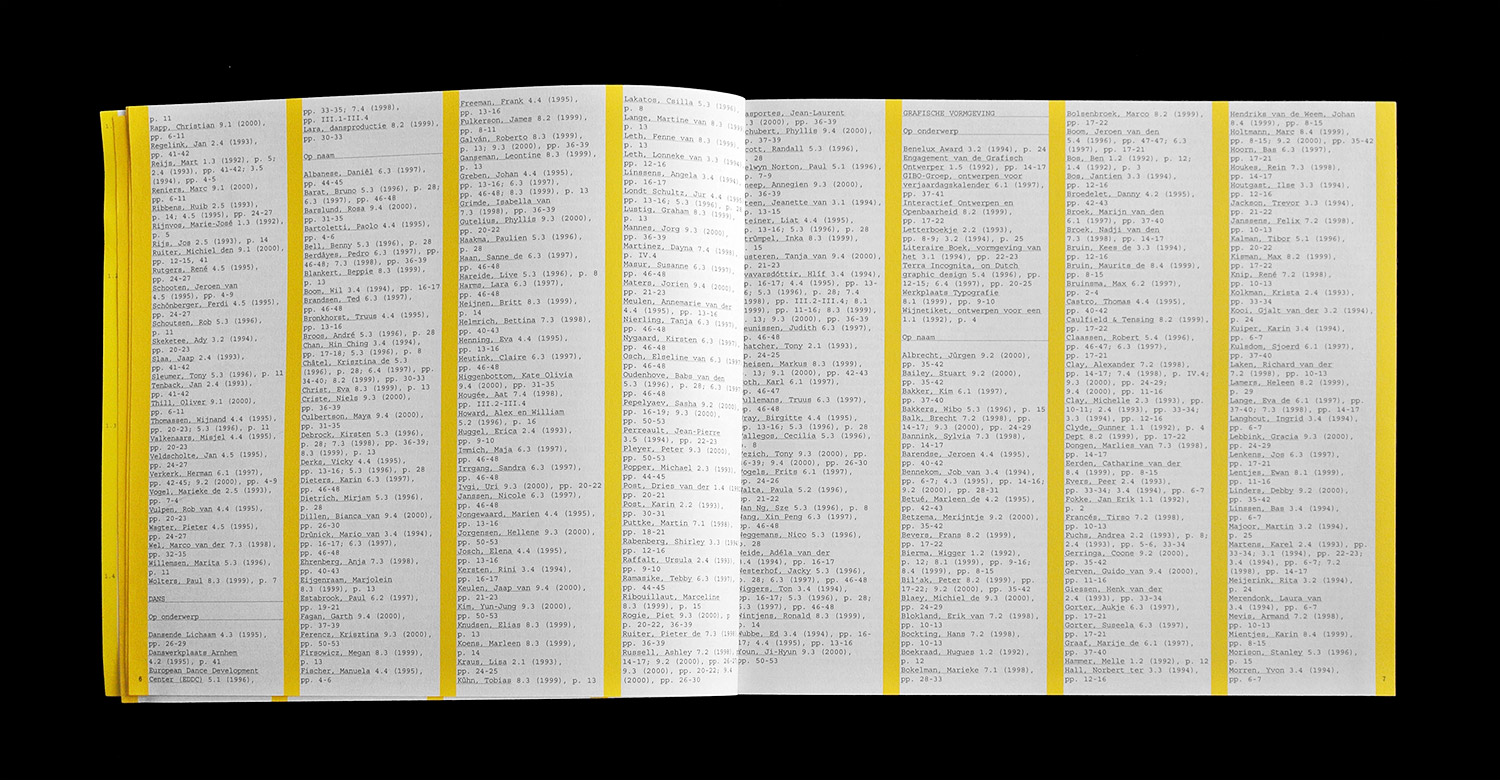 p. 11
Rapp, Christian 9.1 (2000),
pp. 6-11
Regelink, Jan 2.4 (1993),
pp. 41-42
Reijs, Mart 1.3 (1992), p. 5;
2.4 (1993), pp. 41-42; 3.5
(1994), pp. 4-5
Reniers, Marc 9.1 (2000),
pp. 6-11
Ribbens, Huib 2.5 (1993),
p. 14; 4.5 (1995), pp. 24-27
Rijnvos, Marie-José 1.3 (1992),
p. 5
Rijs, Jos 2.5 (1993), p. 14
Ruiter, Michiel den 9.1 (2000),
pp. 12-15, 41
Rutgers, René 4.5 (1995),
pp. 24-27
Schooten, Jeroen van
4.5 (1995), pp. 4-9
Schönberger, Ferdi 4.5 (1995),
pp. 24-27
Schoutsen, Rob 5.3 (1996),
p. 11
Skeketee, Ady 3.2 (1994),
pp. 20-23
Slaa, Jaap 2.4 (1993),
pp. 41-42
Sleumer, Tony 5.3 (1996), p. 11
Tenback, Jan 2.4 (1993),
pp. 41-42
Thill, Oliver 9.1 (2000),
pp. 6-11
Thomassen, Wijnand 4.4 (1995),
pp. 20-23; 5.3 (1996), p. 11
Valkenaars, Misjel 4.4 (1995),
pp. 20-23
Veldscholte, Jan 4.5 (1995),
pp. 24-27
Verkerk, Herman 6.1 (1997),
pp. 42-45; 9.2 (2000), pp. 4-9
Vogel, Marieke de 2.5 (1993),
pp. 7-4
Vulpen, Rob van 4.4 (1995),
pp. 20-23
Wagter, Pieter 4.5 (1995),
pp. 24-27
Wel, Marco van der 7.3 (1998),
pp. 32-35
Willemsen, Marita 5.3 (1996),
p. 11
Wolters, Paul 8.3 (1999), p. 7
DANS
Op onderwerp
Dansende Lichaam 4.3 (1995),
pp. 26-29
Danswerkplaats Arnhem
4.2 (1995), p. 41
European Dance Development
Center (EDDC) 5.1 (1996),
6
pp. 33-35; 7.4 (1998),
pp. III.1-III.4
Lara, dansproductie 8.2 (1999),
pp. 30-33
Op naam
Albanese, Daniël 6.3 (1997),
pp. 44-45
Barat, Bruno 5.3 (1996), p. 28;
6.3 (1997), pp. 46-48
Barslund, Rosa 9.4 (2000),
pp. 31-35
Bartoletti, Paolo 4.4 (1995),
pp. 4-6
Bell, Benny 5.3 (1996), p. 28
Berdâyes, Pedro 6.3 (1997), pp.
46-48; 7.3 (1998), pp. 36-39
Blankert, Beppie 8.3 (1999),
p. 13
Boom, Wil 3.4 (1994), pp. 16-17
Brandsen, Ted 6.3 (1997),
pp. 46-48
Bronkhorst, Truus 4.4 (1995),
pp. 13-16
Broos, André 5.3 (1996), p. 28
Chan, Hin Ching 3.4 (1994),
pp. 17-18; 5.3 (1996), p. 8
Châtel, Krisztina de 5.3
(1996), p. 28; 6.4 (1997), pp.
34-40; 8.2 (1999), pp. 30-33
Christ, Eva 8.3 (1999), p. 13
Criste, Niels 9.3 (2000),
pp. 36-39
Culbertson, Maya 9.4 (2000),
pp. 31-35
Debrock, Kirsten 5.3 (1996),
p. 28; 7.3 (1998), pp. 36-39;
8.3 (1999), p. 13
Derks, Vicky 4.4 (1995),
pp. 13-16; 5.3 (1996), p. 28
Dieters, Karin 6.3 (1997),
pp. 46-48
Dietrich, Mirjam 5.3 (1996),
p. 28
Dillen, Bianca van 9.4 (2000),
pp. 26-30
Drünick, Mario van 3.4 (1994),
pp. 16-17; 6.3 (1997),
pp. 46-48
Ehrenberg, Anja 7.3 (1998),
pp. 40-43
Eijgenraam, Marjolein
8.3 (1999), p. 13
Estabrook, Paul 6.2 (1997),
pp. 19-21
Fagan, Garth 9.4 (2000),
pp. 37-39
Ferencz, Krisztina 9.3 (2000),
pp. 50-53
Firsowicz, Megan 8.3 (1999),
p. 13
Fischer, Manuela 4.4 (1995),
pp. 4-6
Freeman, Frank 4.4 (1995),
pp. 13-16
Fulkerson, James 8.2 (1999),
pp. 8-11
Galván, Roberto 8.3 (1999),
p. 13; 9.3 (2000), pp. 36-39
Ganseman, Leontine 8.3 (1999),
p. 13
Greben, Johan 4.4 (1995),
pp. 13-16; 6.3 (1997),
pp. 46-48; 8.3 (1999), p. 13
Grimde, Isabella van
7.3 (1998), pp. 36-39
Gutelius, Phyllis 9.3 (2000),
pp. 20-22
Haakma, Paulien 5.3 (1996),
p. 28
Haan, Sanne de 6.3 (1997),
pp. 46-48
Hareide, Live 5.3 (1996), p. 8
Harms, Lara 6.3 (1997),
pp. 46-48
Heijnen, Britt 8.3 (1999),
p. 14
Helmrich, Bettina 7.3 (1998),
pp. 40-43
Henning, Eva 4.4 (1995),
pp. 13-16
Heutink, Claire 6.3 (1997),
pp. 46-48
Higgenbottom, Kate Olivia
9.4 (2000), pp. 31-35
Hougée, Aat 7.4 (1998),
pp. III.2-III.4
Howard, Alex en William
5.2 (1996), p. 16
Huggel, Erica 2.4 (1993),
pp. 9-10
Immich, Maja 6.3 (1997),
pp. 46-48
Irrgang, Sandra 6.3 (1997),
pp. 46-48
Ivgi, Uri 9.3 (2000), pp. 20-22
Janssen, Nicole 6.3 (1997),
pp. 46-48
Jongewaard, Marien 4.4 (1995),
pp. 13-16
Jorgensen, Hellene 9.3 (2000),
pp. 50-53
Josch, Elena 4.4 (1995),
pp. 13-16
Kersten, Rini 3.4 (1994),
pp. 16-17
Keulen, Jaap van 9.4 (2000),
pp. 21-23
Kim, Yun-Jung 9.3 (2000),
pp. 50-53
Knudsen, Elias 8.3 (1999),
p. 13
Koens, Marleen 8.3 (1999),
p. 14
Kraus, Lisa 2.1 (1993),
pp. 24-25
Kühn, Tobias 8.3 (1999), p. 13
Lakatos, Csilla 5.3 (1996),
p. 8
Lange, Martine van 8.3 (1999),
p. 13
Leth, Fenne van 8.3
p. 13
Leth, Lonneke van 3.3 (1994),
pp. 12-16
Linssens, Angela 3.4 (1994),
pp. 16-17
Londt Schultz, Jur 4.4
pp. 13-16; 5.3 (1996), p. 28
Lustig, Graham 8.3 (1999),
p. 13
Mannes, Jorg 9.3 (2000),
pp. 36-39
Martinez, Dayna 7.4 (1998),
p. IV.4
Masur, Susanne 6.3 (1997),
pp. 46-48
Maters, Jorien 9.4 (2000),
pp. 21-23
Meulen, Annemarie van der
4.4 (1995), pp. 13-16
Nierling, Tanja 6.3 (1997),
pp. 46-48
Nygaard, Kirsten 6.3 (1997),
pp. 46-48
Osch, Elseline van 6.3 (1997),
pp. 46-48
Oudenhove, Babs van den
5.3 (1996), p. 28; 6.3
pp. 46-48
Pepelyaev, Sasha 9.2 (2000),
pp. 16-19; 9.3 (2000),
pp. 50-53
Perreault, Jean-Pierre
3.5 (1994), pp. 22-23
Pleyer, Peter 9.3 (2000),
pp. 50-53
Popper, Michael 2.3 (1993),
pp. 44-45
Post, Dries van der 1.4
pp. 20-21
Post, Karin 2.2 (1993),
pp. 30-31
Puttke, Martin 7.1 (1998),
pp. 18-21
Rabenberg, Shirley 3.3
pp. 12-16
Raffalt, Ursula 2.4 (1993),
pp. 9-10
Ramasike, Tebby 6.3 (1997),
pp. 44-45
Ribouillaut, Marceline
8.3 (1999), p. 15
Rogie, Piet 9.3 (2000),
p. 20-22, 36-39
Ruiter, Pieter de 7.3
pp. 36-39
Russell, Ashley 7.2 (1998),
14-17; 9.2 (2000), pp.
9.3 (2000), pp. 20-22; 9.4
(2000), pp. 26-30
asportes, Jean-Laurent
.3 (2000), pp. 36-39
chubert, Phyllis 9.4 (2000),
p. 37-39
cott, Randall 5.3 (1996),
. 28
elwyn Norton, Paul 5.1 (1996),
p. 7-9
neep, Annegien 9.3 (2000),
p. 36-39
teen, Jeanette van 3.1 (1994),
p. 13-15
teiner, Liat 4.4 (1995),
p. 13-16; 5.3 (1996), p. 28
trümpel, Inka 8.3 (1999),
. 15
usteren, Tanja van 9.4 (2000),
p. 21-23
vavarsdóttir, Hlíf 3.4 (1994),
p. 16-17; 4.4 (1995), pp. 13-
6; 5.3 (1996), p. 28; 7.4
1998), pp. III.2-III.4; 8.1
1999), pp. 11-16; 8.3 (1999),
. 13; 9.3 (2000), pp. 36-39
eunissen, Judith 6.3 (1997),
p. 46-48
hatcher, Tony 2.1 (1993),
p. 24-25
heisen, Markus 8.3 (1999),
. 13; 9.1 (2000), pp. 42-43
oth, Karl 6.1 (1997),
p. 46-47
ullemans, Truus 6.3 (1997),
p. 46-48
ray, Birgitte 4.4 (1995),
p. 13-16; 5.3 (1996), p. 28
allegos, Cecilia 5.3 (1996),
. 8
ezich, Tony 9.3 (2000), pp.
6-39; 9.4 (2000), pp. 26-30
ogels, Frits 6.1 (1997),
p. 24-26
alta, Paula 5.2 (1996),
p. 21-22
an Ng, Sze 5.3 (1996), p. 8
ang, Xin Peng 6.3 (1997),
p. 46-48
eggemans, Nico 5.3 (1996),
p. 28
eide, Adéla van der
.4 (1994), pp. 16-17
esterhof, Jacky 5.3 (1996),
p. 28; 6.3 (1997), pp. 46-48
iggers, Ton 3.4 (1994),
pp. 16-17; 5.3 (1996), p. 28;
p. 46-48
intjens, Ronald 8.3 (1999),
p. 14
ubbe, Ed 3.4 (1994), pp. 16-
17; 4.4 (1995), pp. 13-16
oun, Ji-Hyun 9.3 (2000),
pp. 50-53
GRAFISCHE VORMGEVING
Op onderwerp
Benelux Award 3.2 (1994), p. 24
Engagement van de Grafisch
Ontwerper 1.5 (1992), pp. 14-17
GIBO-Groep, ontwerpen voor
verjaardagskalender 6.1 (1997),
pp. 37-41
Interactief Ontwerpen en
Openbaarheid 8.2 (1999),
pp. 17-22
Letterboekje 2.2 (1993),
pp. 8-9; 3.2 (1994), p. 25
Literaire Boek, vormgeving van
het 3.1 (1994), pp. 22-23
Terra Incognita, on Dutch
graphic design 5.4 (1996), pp.
12-15; 6.4 (1997), pp. 20-25
Werkplaats Typografie
8.1 (1999), pp. 9-10
Wijnetiket, ontwerpen voor een
1.1 (1992), p. 4
Op naam
Albrecht, Jürgen 9.2 (2000),
pp. 35-42
Bailey, Stuart 9.2 (2000),
pp. 35-42
Bakker, Kim 6.1 (1997),
pp. 37-40
Bakkers, Wibo 5.3 (1996), p. 15
Balk, Brecht 7.2 (1998), pp.
14-17; 9.3 (2000), pp. 24-29
Bannink, Sylvia 7.3 (1998),
pp. 14-17
Barendse, Jeroen 4.4 (1995),
pp. 40-42
Bennekom, Job van 3.4 (1994),
pp. 6-7; 4.3 (1995), pp. 14-16;
9.2 (2000), pp. 28-31
Betué, Marleen de 4.2 (1995),
pp. 42-43
Betzema, Merijntje 9.2 (2000),
pp. 35-42
Bevers, Frans 8.2 (1999),
pp. 17-22
Bierma, Wigger 1.2 (1992),
p. 12; 8.1 (1999), pp. 9-16;
8.4 (1999), pp. 8-15
Bil'ak, Peter 8.2 (1999), pp.
17-22; 9.2 (2000), pp. 35-42
Blaey, Michiel de 9.3 (2000),
pp. 24-29
Blokland, Erik van 7.2 (1998),
pp. 10-13
Bockting, Hans 7.2 (1998),
pp. 10-13
Boekraad, Hugues 1.2 (1992),
p. 12
Bokelman, Marieke 7.1 (1998),
pp. 28-33
Bolsenbroek, Marco 8.2 (1999),
pp. 17-22
Boom, Jeroen van den
5.4 (1996), pp. 47-47; 6.3
(1997), pp. 17-21
Bos, Ben 1.2 (1992), p. 12;
1.4 (1992), p. 3
Bos, Jantien 3.3 (1994),
pp. 12-16
Broedelet, Danny 4.2 (1995),
pp. 42-43
Broek, Marijn van den
6.1 (1997), pp. 37-40
Broek, Nadji van den
7.3 (1998), pp. 14-17
Bruin, Kees de 3.3 (1994),
pp. 12-16
Bruin, Maurits de 8.4 (1999),
pp. 8-15
Bruinsma, Max 6.2 (1997),
pp. 2-4
Castro, Thomas 4.4 (1995),
pp. 40-42
Caulfield & Tensing 8.2 (1999),
pp. 17-22
Claassen, Robert 5.4 (1996),
pp. 46-47; 6.3 (1997),
pp. 17-21
Clay, Alexander 7.2 (1998),
pp. 14-17; 7.4 (1998), p. IV.4;
9.3 (2000), pp. 24-29;
9.4 (2000), pp. 11-16
Clay, Michelle 2.3 (1993), pp.
10-11; 2.4 (1993), pp. 33-34;
3.3 (1994), pp. 12-16
Clyde, Gunner 1.1 (1992), p. 4
Dept 8.2 (1999), pp. 17-22
Dongen, Marlies van 7.3 (1998),
pp. 14-17
Eerden, Catharine van der
8.4 (1999), pp. 8-15
Evers, Peer 2.4 (1993),
pp. 33-34; 3.4 (1994), pp. 6-7
Fokke, Jan Erik 1.1 (1992),
p. 2
Francés, Tirso 7.2 (1998),
pp. 10-13
Fuchs, Andrea 2.2 (1993), p. 8;
2.4 (1993), pp. 5-6, 33-34
Gerringa, Coone 9.2 (2000),
pp. 35-42
Gerven, Guido van 9.4 (2000),
pp. 11-16
Giessen, Henk van der
2.4 (1993), pp. 33-34
Gorter, Aukje 6.3 (1997),
pp. 17-21
Gorter, Suseela 6.3 (1997),
pp. 17-21
Graaf, Marije de 6.1 (1997),
pp. 37-40
Hammer, Melle 1.2 (1992), p. 12
Hall, Norbert ter 3.3 (1994),
pp. 12-16
Hendriks van de Weem, Johan
8.4 (1999), pp. 8-15
Holtmann, Marc 8.4 (1999),
pp. 8-15; 9.2 (2000), pp. 35-42
Hoorn, Bas 6.3 (1997),
pp. 17-21
Houkes, Rein 7.3 (1998),
pp. 14-17
Houtgast, Ilse 3.3 (1994),
pp. 12-16
Jackson, Trevor 3.3 (1994),
pp. 21-22
Janssens, Felix 7.2 (1998),
pp. 10-13
Kalman, Tibor 5.1 (1996),
pp. 20-22
Kisman, Max 8.2 (1999),
pp. 17-22
Knip, René 7.2 (1998),
pp. 10-13
Kolkman, Krista 2.4 (1993),
pp. 33-34
Kooi, Gjalt van der 3.2 (1994),
p. 24
Kuiper, Karin 3.4 (1994),
pp. 6-7
Kulsdom, Sjoerd 6.1 (1997),
pp. 37-40
Laken, Richard van der
7.2 (1998), pp. 10-13
Lamers, Heleen 8.2 (1999),
p. 29
Lange, Eva de 6.1 (1997), pp.
37-40; 7.3 (1998), pp. 14-17
Langhout, Ingrid 3.4 (1994),
pp. 6-7
Lebbink, Gracia 9.3 (2000),
pp. 24-29
Lenkens, Jos 6.3 (1997),
pp. 17-21
Lentjes, Ewan 8.1 (1999),
pp. 11-16
Linders, Debby 9.2 (2000),
pp. 35-42
Linssen, Bas 3.4 (1994),
pp. 6-7
Majoor, Martin 3.2 (1994),
p. 25
Martens, Karel 2.4 (1993), pp.
33-34; 3.1 (1994), pp. 22-23;
3.4 (1994), pp. 6-7; 7.2
(1998), pp. 14-17
Meijerink, Rita 3.2 (1994),
p. 24
Merendonk, Laura van
3.4 (1994), pp. 6-7
Mevis, Armand 7.2 (1998),
pp. 10-13
Mientjes, Karin 8.4 (1999),
pp. 8-15
Morison, Stanley 5.3 (1996),
p. 15
Morren, Yvon 3.4 (1994),
pp. 6-7
7